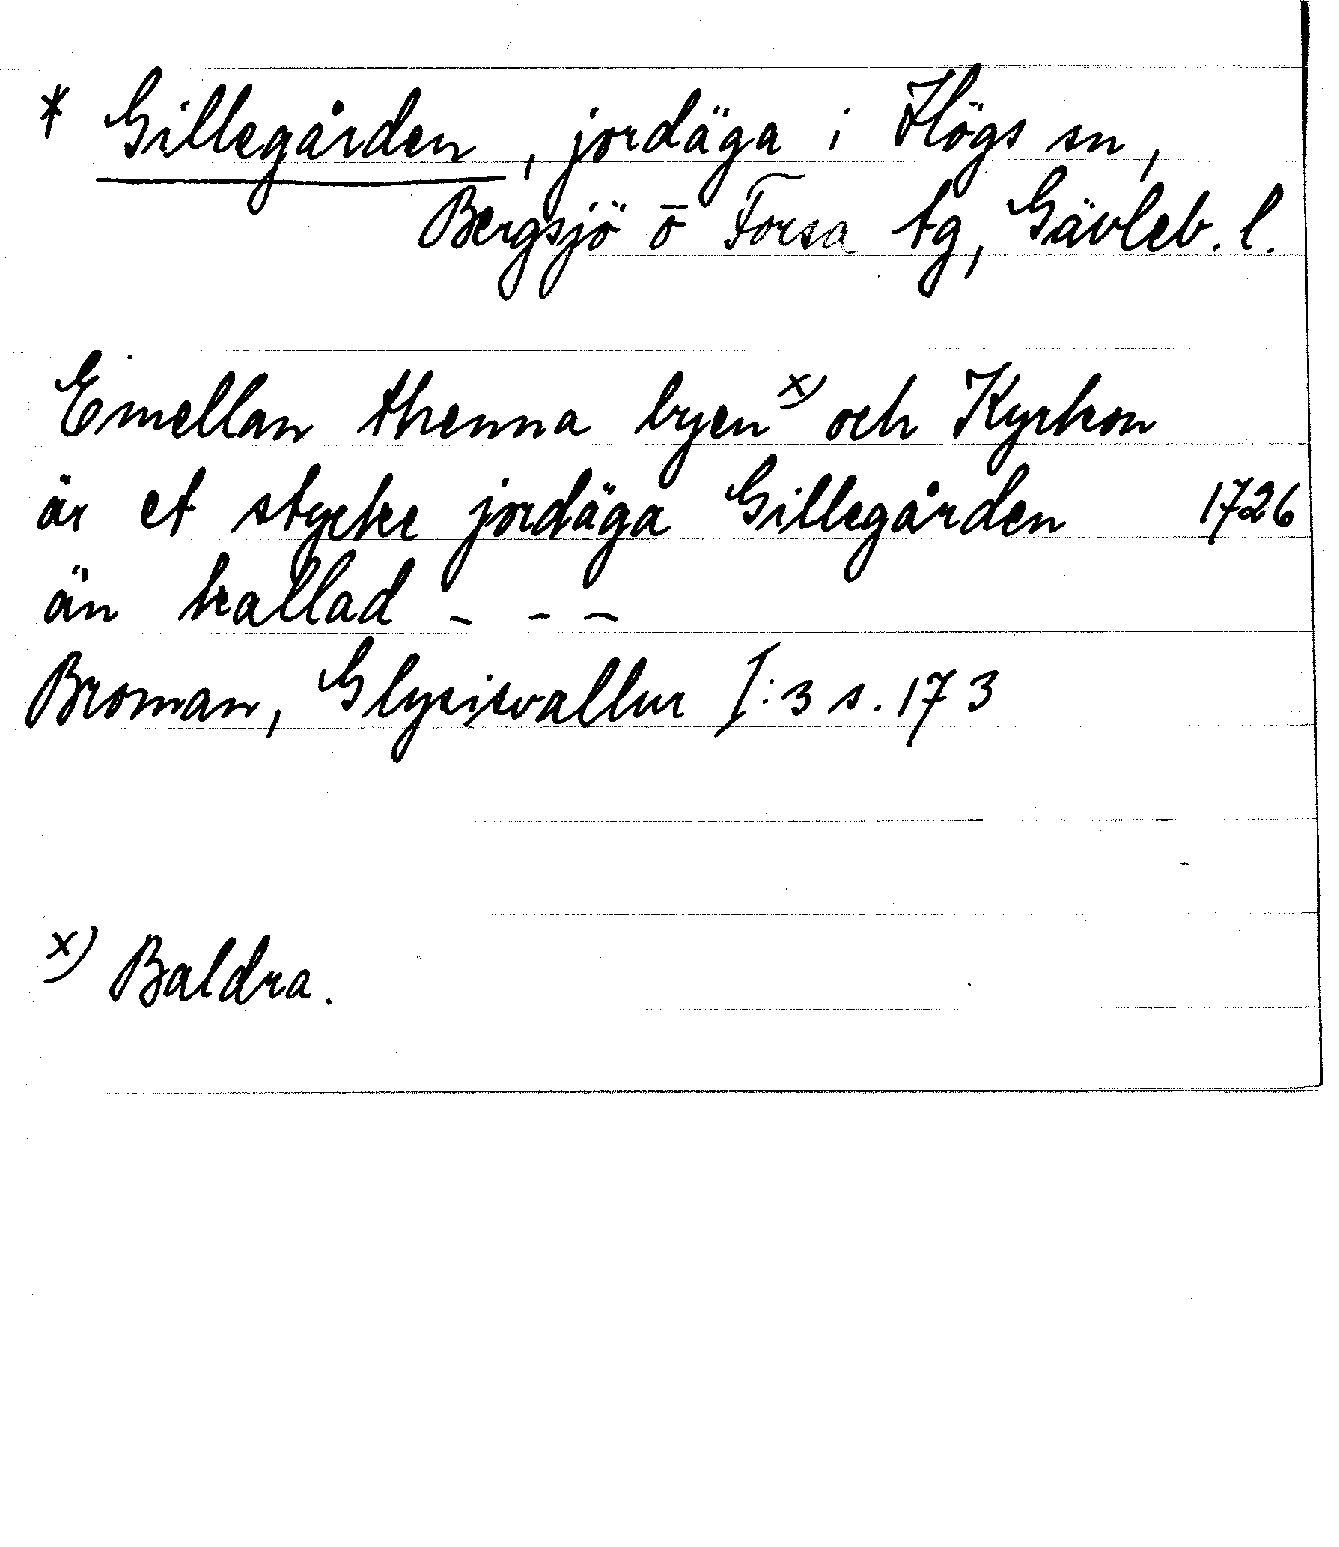 * Gillegården, jordäga i Högs sn,
Bergsjö o Forsa tg, Gävleb. l.
Emellan thenna byen x) och Kyrkon
är et stycke jordäga Gillegården 1726
än kallad - - -
Broman, Glysisvallur I:3 s. 173
x) Baldra.